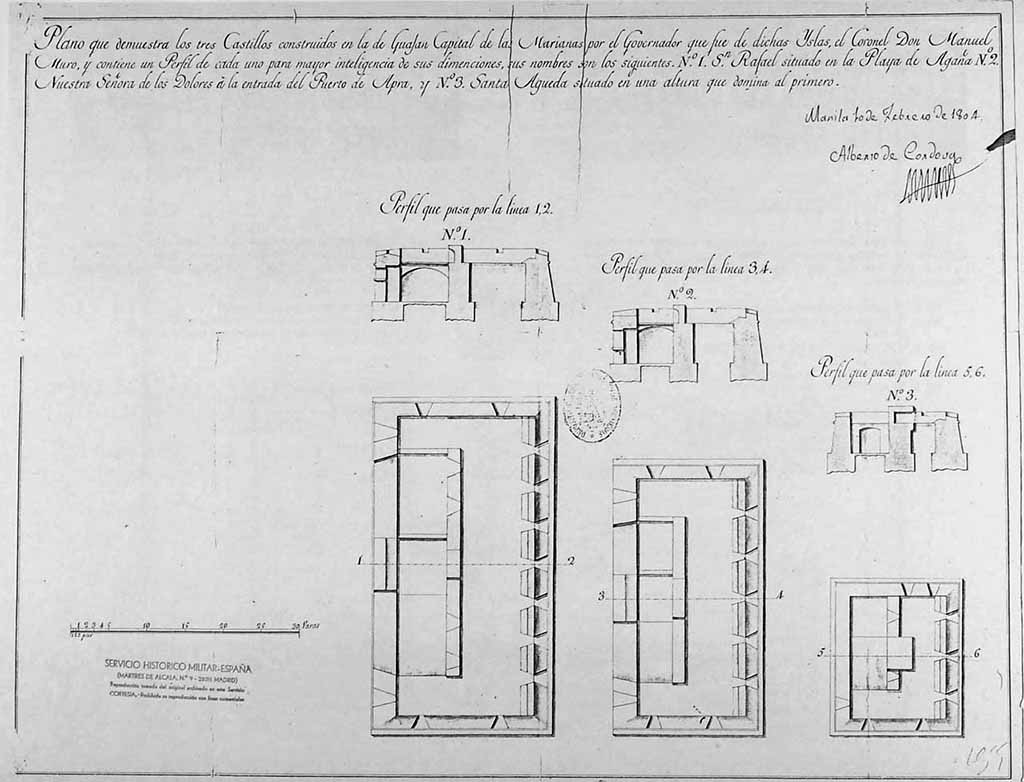 Plano que demuestra los tres Castillos construidos en la de Guajan Capital de las Marianas por el Governador que fue de dichas Yslas, el Coronel Don Manuel
Muro, y contiene un Perfil de cada uno para mayor inteligencia de sus dimenciones, sus nombres son los siguientes. N.º 1. S.n Rafael situado en la Playa de Agaña N.º 2.
Nuestra Señora de los Dolores à la entrada del Puerto de Apra, y N.º 3. Santa Agueda situado en una altura que domina al primero.
Manila de Febrero de 1804.
Alberto de Cordova
Perfil que pasa por la linea 1,2.
N.º 1.
Perfil que pasa por la linea 3,4.
N.º 2.
Perfil que pasa por la linea 5,6.
N.º 3.
1 2
3 4
5 6
1 2 3 4 5 10 15 20 25 30 Varas
SERVICIO HISTORICO MILITAR-ESPAÑA
(MARTIRES DE ALCALA, N.º 9 - 28015 MADRID)
Reproducción tomada del original archivado en este Servicio
CORTESIA.-Prohibida su reproducción con fines comerciales